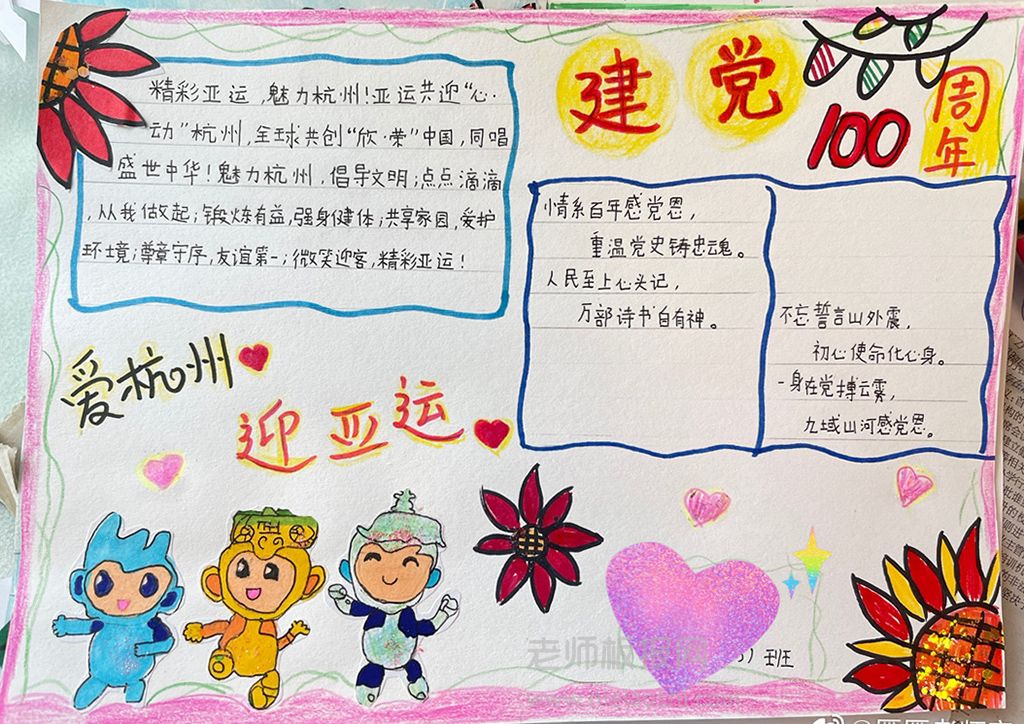 精彩亚运,魅力杭州!亚运共迎“心·
动”杭州,全球共创“欣·荣”中国,同唱
盛世中华!魅力杭州,倡导文明;点点滴滴
,从我做起;锻炼有益,强身健体;共享家园,爱护
环境;尊章守序,友谊第一;微笑迎客,精彩亚运!
建党
100
周年
情系百年感党恩,
重温党史铸忠魂。
人民至上心头记,
万部诗书自有神。
不忘誓言山外震,
初心使命化心身。
一身在党搏云雾,
九域山河感党恩。
爱杭州
迎亚运
老师板报
5)班